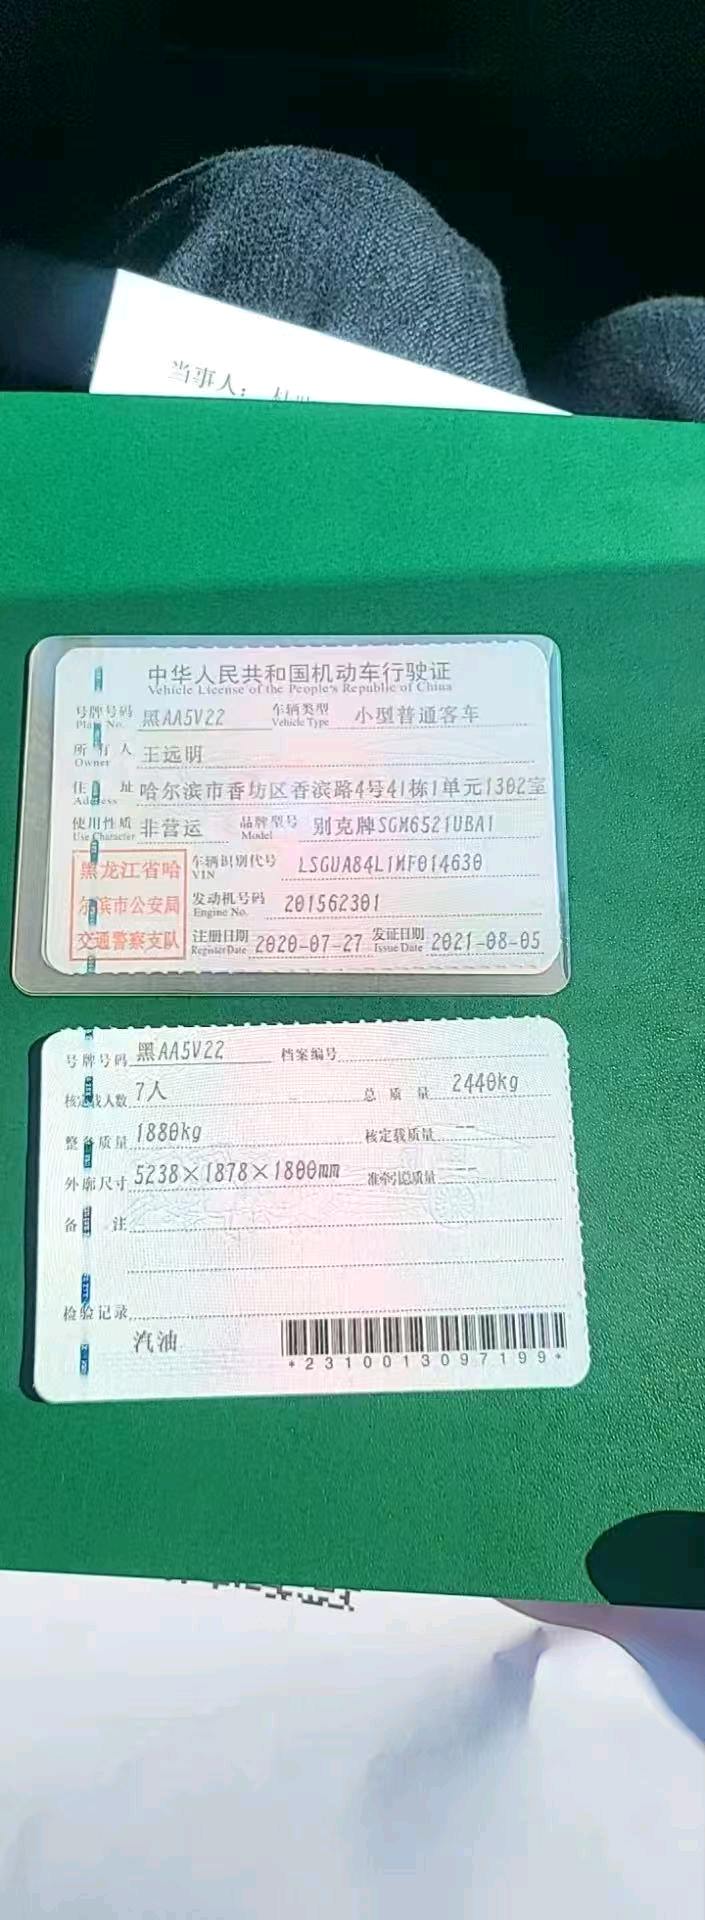 当事人：
中华人民共和国机动车行驶证
Vehicle License of the People's Republic of China
号牌号码 黑AA5V22 车辆类型 小型普通客车
Plate No. Vehicle Type
所有人 王远明
Owner
住址 哈尔滨市香坊区香滨路4号41栋1单元1302室
Address
使用性质 非营运 品牌型号 别克牌SGM6521UBA1
Use Character Model
黑龙江省哈
尔滨市公安局
交通警察支队
车辆识别代号 LSGUA84L1MF014630
VIN
发动机号码 201562301
Engine No.
注册日期 2020-07-27 发证日期 2021-08-05
Register Date Issue Date
号牌号码 黑AA5V22 档案编号
核定载人数 7人 总质量 2440kg
整备质量 1880kg 核定载质量 --
外廓尺寸 5238×1878×1800mm 准牵引总质量 --
备注
检验记录
汽油
*2310013097199*